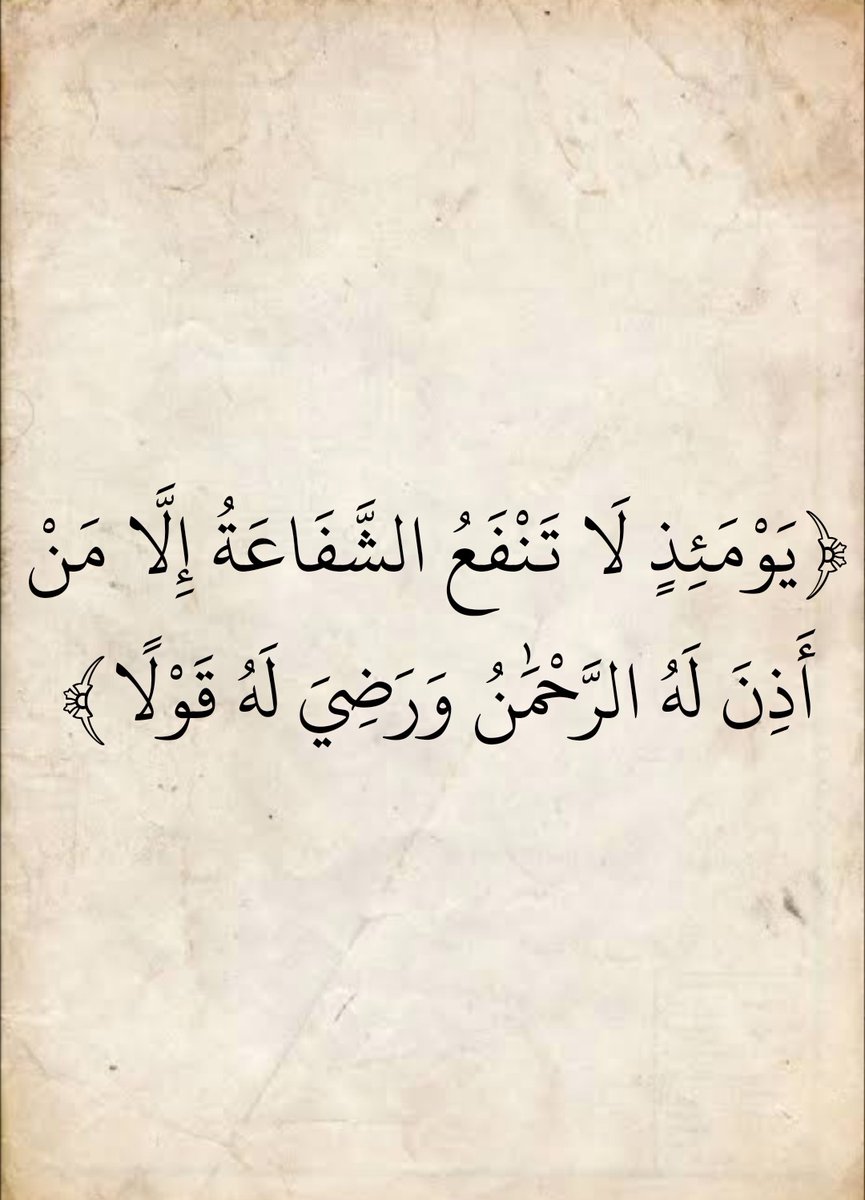 ﴿يَوْمَئِذٍ لَا تَنْفَعُ الشَّفَاعَةُ إِلَّا مَنْ
أَذِنَ لَهُ الرَّحْمَٰنُ وَرَضِيَ لَهُ قَوْلًا﴾